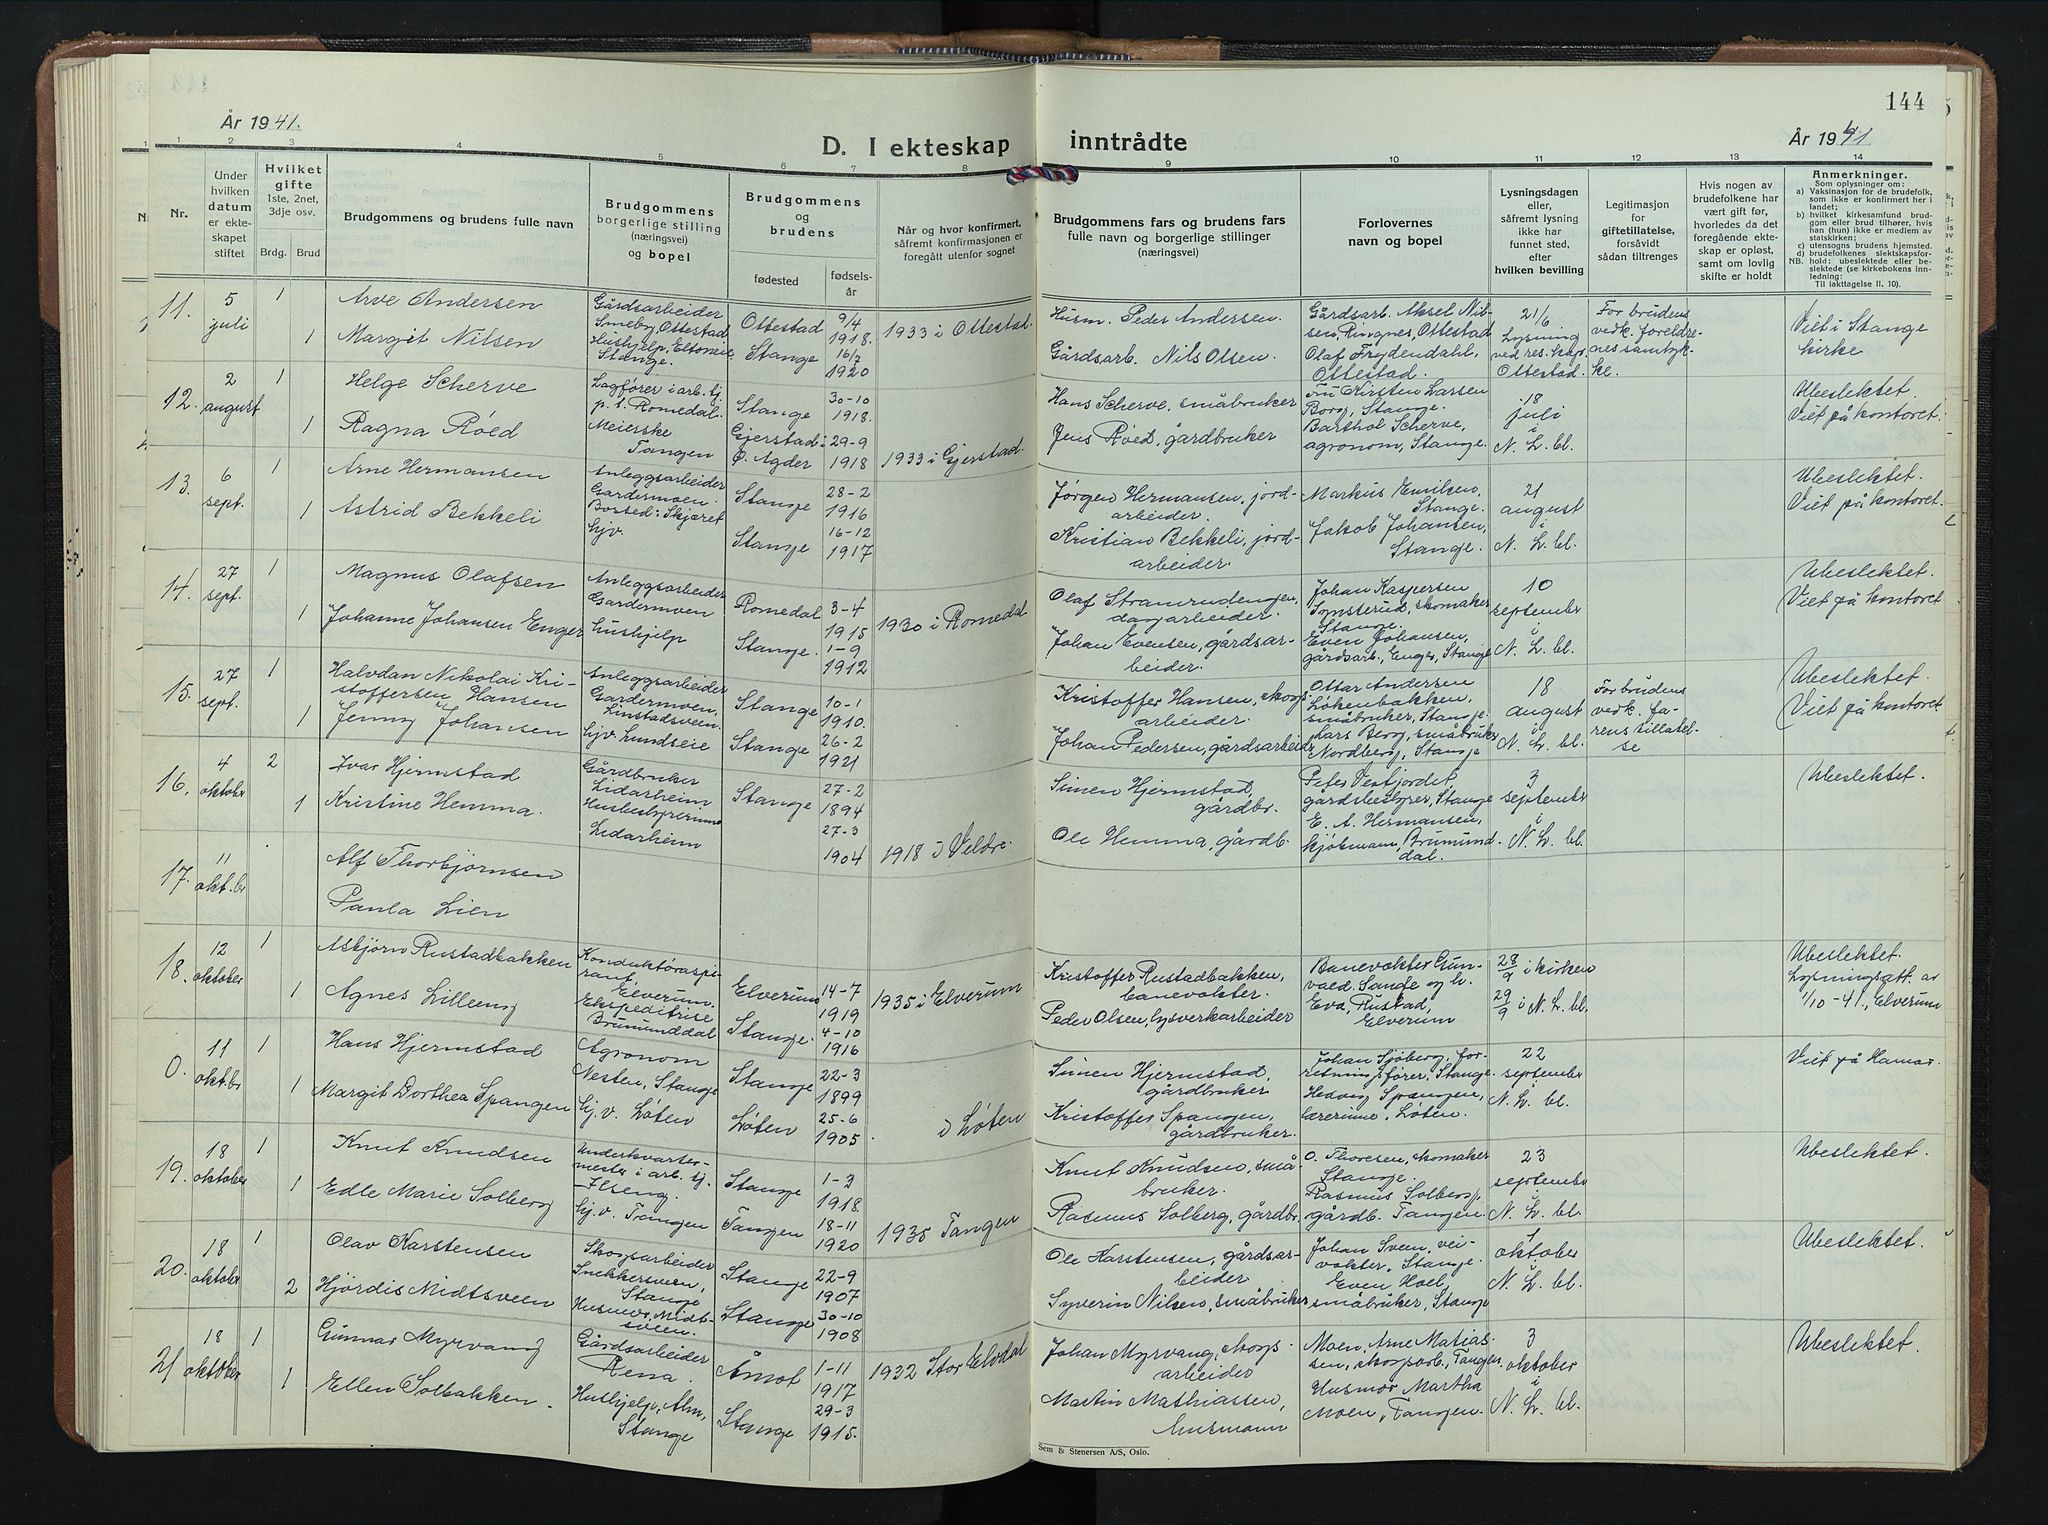 År 1941.
D. I ekteskap
inntrådte
144
År 1941
1 2 3 4 5 6 7 8 9 10 11 12 13 14
Nr.
Under
hvilken
datum
er ekte-
skapet
stiftet
Hvilket
gifte
1ste, 2net,
3dje osv.
Brdg. Brud
Brudgommens og brudens fulle navn
Brudgommens
borgerlige stilling
(næringsvei)
og bopel
Brudgommens
og
brudens
fødested
fødsels-
år
Når og hvor konfirmert,
såfremt konfirmasjonen er
foregått utenfor sognet
Brudgommens fars og brudens fars
fulle navn og borgerlige stillinger
(næringsvei)
Forlovernes
navn og bopel
Lysningsdagen
eller,
såfremt lysning
ikke har
funnet sted,
efter
hvilken bevilling
Legitimasjon
for
giftetillatelse,
forsåvidt
sådan tiltrenges
Hvis nogen av
brudefolkene har
vært gift før,
hvorledes da det
foregående ekte-
skap er opløst,
samt om lovlig
skifte er holdt
Anmerkninger.
Som oplysninger om:
a) Vaksinasjon for de brudefolk,
som ikke er konfirmert her i
landet;
b) hvilket kirkesamfund brud-
gom eller brud tilhører, hvis
han (hun) ikke er medlem av
statskirken;
c) utensogns brudens hjemsted.
d) brudefolkenes slektskapsfor-
NB. hold: ubeslektede eller be-
slektede (se kirkebokens inn-
ledning;
Til iakttagelse II. 10).
11. 5 juli 1
Arve Andersen
Gårdsarbeider
Smeby, Ottestad
Ottestad 9/4 1918.
1933 i Ottestad.
Husm. Peder Andersen.
Gårdsarb. Aksel Nil-
sen, Ringnes, Ottestad
21/6
Lysning
ved res. kap.
Ottestad.
For brudens
vedk. foreldre-
nes samtyk-
ke.
Viet i Stange
kirke
1 Margit Nilsen
Hushjelp,
Stange.
Stange 16/7 1920
Gårdsarb. Nils Olsen.
Olaf Frydendahl,
Ottestad.
12. 2 august 1
Helge Scherve
Lagfører i arb. tj.
p. t. Romedal.
Stange 30-10 1918.
Hans Scherve, småbruker
Fru Kirsten Larsen
Borg, Stange.
18
juli
i
N. L. bl.
Ubeslektet.
Viet på kontoret.
1 Ragna Røed
Meierske
Tangen
Gjerstad i
Ø. Agder
29-9 1918
1933 i Gjerstad.
Jens Røed, gårdbruker
Barthol Scherve,
agronom, Stange.
13. 6 sept. 1
Arne Hermansen
Anleggsarbeider
Gardermoen.
Bosted: Skjæret
Stange 28-2 1916
Jørgen Hermansen, jord-
arbeider.
Markus Emilsen,
Stange.
21
august
i
N. L. bl.
Ubeslektet.
Viet på kontoret.
1 Astrid Bekkeli
hjv.
Stange 16-12 1917
Kristian Bekkeli, jord-
arbeider.
Jakob Johansen,
Stange.
14. 27 sept. 1
Magnus Olafsen
Anleggsarbeider
Gardermoen
Romedal 3-4 1915
1930 i Romedal
Olaf Stramrudengen,
dagarbeider.
Johan Kaspersen
Synsterud, skomaker
Stange.
10
september
i
N. L. bl.
Ubeslektet.
Viet på kontoret
1 Johanne Johansen Enger
hushjelp
Stange. 1-9 1912
Johan Evensen, gårdsar-
beider.
Even Johansen,
gårdsarb., Enger, Stange
15. 27 sept. 1
Halvdan Nikolai Kri-
stoffersen Hansen
Anleggsarbeider
Gardermoen,
Linstadsveen.
Stange 10-1 1910.
Kristoffer Hansen, skogs-
arbeider.
Ottar Andersen
Løkenbakken,
småbruker, Stange.
18
august
i
N. L. bl.
For brudens
vedk. fa-
rens tillatel-
se
Ubeslektet.
Viet på kontoret.
1 Jenny Johansen
hjv. Lundseie
Stange 26-2 1921
Johan Pedersen, gårdsarbeider
Lars Berg, småbruker
Nordberg, Stange
16. 4 oktober 2
Ivar Hjermstad
Gårdbruker
Lidarheim
Stange 27-2 1894
Simen Hjermstad,
gårdbr.
Peter Vestfjordet,
gårdsbestyrer, Stange
3
september
i
N. L. bl.
Ubeslektet.
1 Kristine Hemma.
Husbestyrerinne
Lidarheim
27-3 1904
1918 i Veldre.
Ole Hemma, gårdb.
E. A. Hermansen,
kjøbmann, Brumund-
dal.
17. 11 okt.br
Alf Thorbjørnsen
Paula Lien
18. 12 oktober 1
Asbjørn Rustadbakken
Konduktøraspi-
rant,
Elverum.
Elverum 14-7 1919
1935 i Elverum
Kristoffer Rustadbakken,
banevokter.
Banevokter Gun-
vald Sange og
28/9 i kirken
29/9 i N. L. bl.
Ubeslektet.
Lysningsatt. av
1/10-41, Elverum
1 Agnes Lilleeng
Ekspeditrise
Brumunddal
Stange. 4-10 1916
Peder Olsen, lysverkarbeider
Eva Rustad,
Elverum
0. 11 okt.br 1
Hans Hjermstad
Agronom
Nesten, Stange
Stange 22-3 1899
Simen Hjermstad,
gårdbruker
Johan Sjøberg, for-
retningsfører, Stange.
22
september
i
N. L. bl.
Viet på Hamar.
1 Margit Dorthea Spangen
hj. v. Løten
Løten 25-6 1905.
i Løten
Kristoffer Spangen,
gårdbruker.
Hedvig Spangen,
lærerinne, Løten.
19. 18 oktober 1
Knut Knudsen
Underkvarter-
mester i arb. tj.
- Ilseng.
Stange 1-3 1918.
Knut Knudsen, små-
bruker.
O. Thoresen, skomaker
Stange.
23
september
i
N. L. bl.
Ubeslektet.
1 Edle Marie Solberg
hj. v. Tangen
Tangen 18-11 1920
1935 Tangen
Rasmus Solberg, gårdbr.
Rasmus Solberg,
gårdb. Tangen.
20. 18 oktober 1
Olav Karstensen
Skogsarbeider
Snekkersveen,
Stange
Stange 22-9 1907
Ole Karstensen, gårdsar-
beider
Johan Sveen, vei-
vokter, Stange.
1
oktober
i
N. L. bl.
Ubeslektet.
2 Hjørdis Midtsveen
Husmor, Midt-
sveen.
Stange 30-10 1908
Syverin Nilsen, småbruker
Even Hoel,
småbruker, Stange
21 18 oktober 1
Gunnar Myrvang
Gårdsarbeider
Rena.
Åmot 1-11 1917
1932 Stor Elvdal
Johan Myrvang, skogs-
arbeider
Moen, Arne Matias-
sen, skogsarb., Tangen
3
oktober
i
N. L. bl.
Ubeslektet.
1 Ellen Solbakken.
Hushjelp, Alm,
Stange
Stange 29-3 1915.
Martin Mathiassen,
husmann
Husmor Martha
Moen, Tangen.
Sem & Stenersen A/S, Oslo.